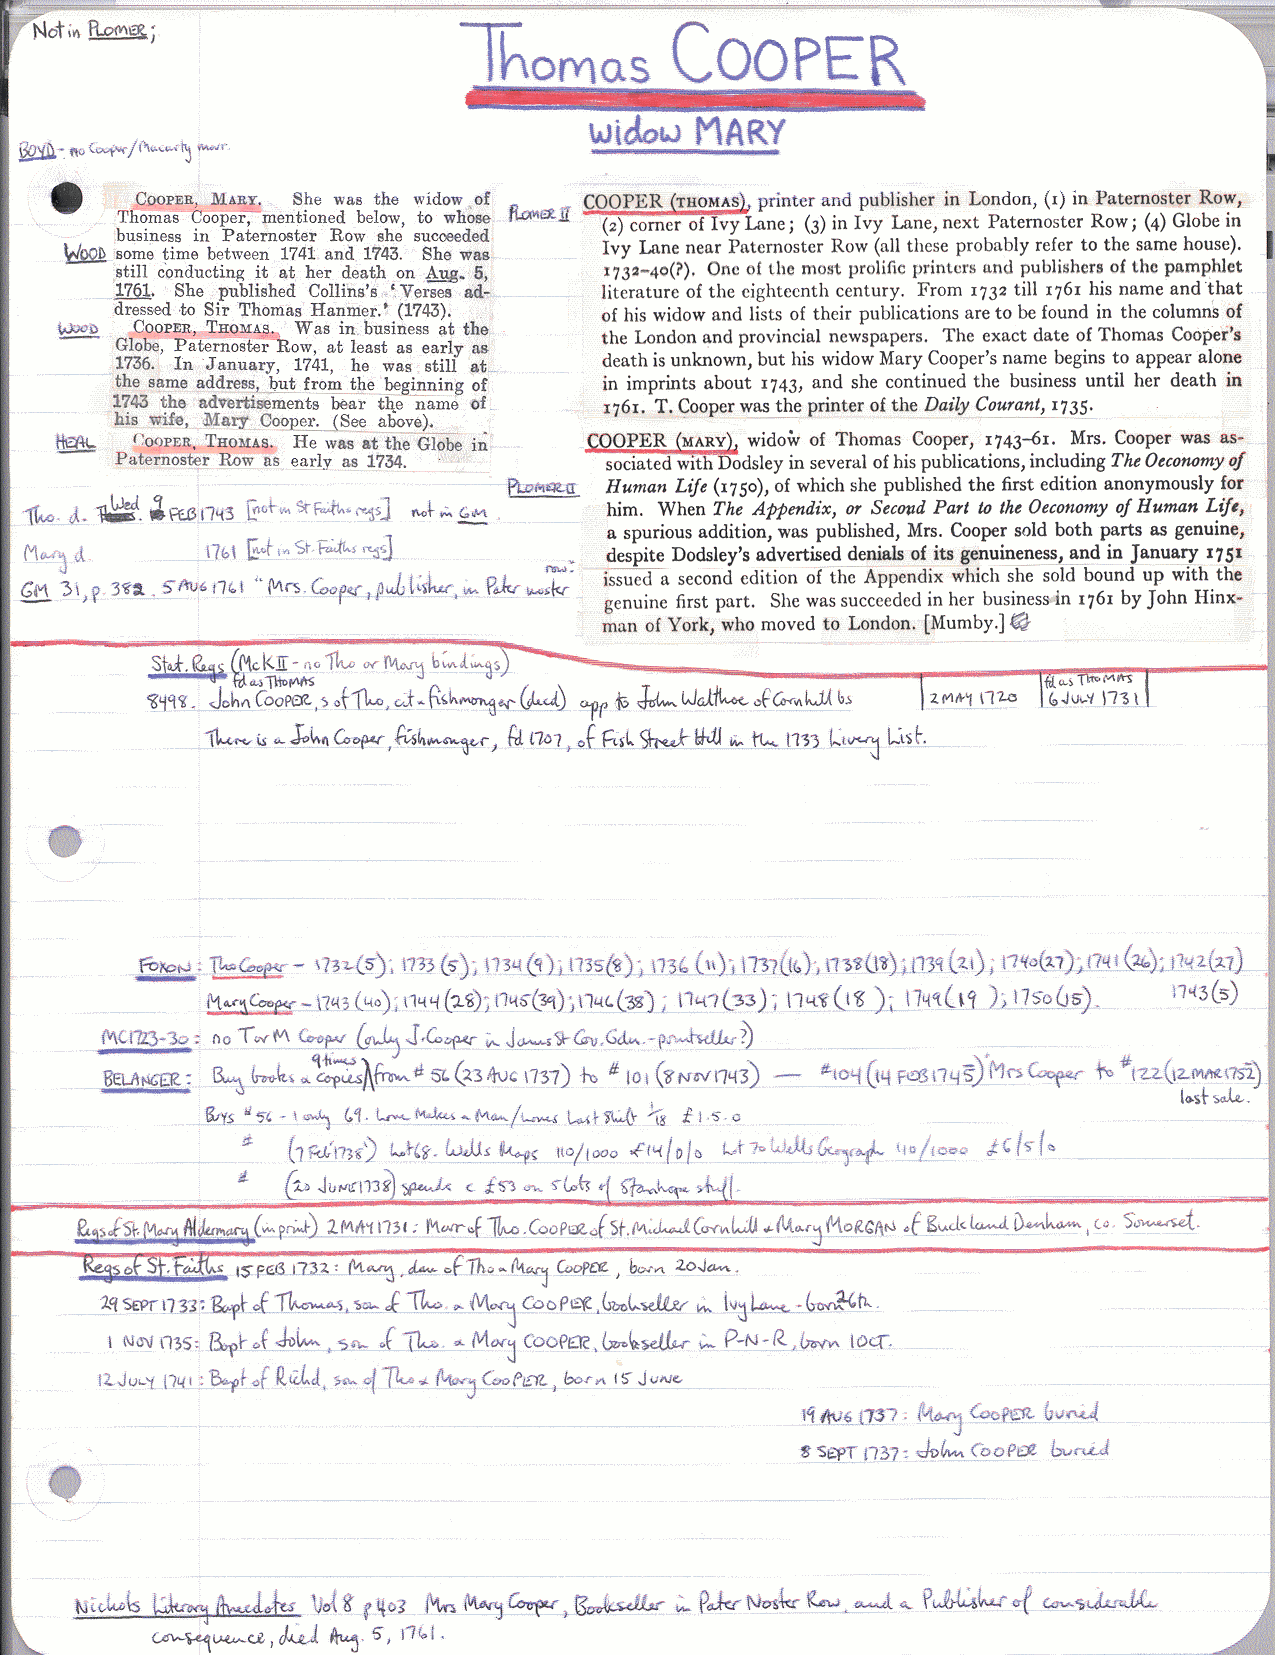 Not in PLOMER;
Thomas COOPER
widow MARY
BOYD - no Cooper/Macarty marr.
COOPER, MARY. She was the widow of
Thomas Cooper, mentioned below, to whose
business in Paternoster Row she succeeded
WOOD some time between 1741 and 1743. She was
still conducting it at her death on Aug. 5,
1761. She published Collins's 'Verses ad-
dressed to Sir Thomas Hanmer.' (1743).
WOOD COOPER, THOMAS. Was in business at the
Globe, Paternoster Row, at least as early as
1736. In January, 1741, he was still at
the same address, but from the beginning of
1743 the advertisements bear the name of
his wife, Mary Cooper. (See above).
HEAL COOPER, THOMAS. He was at the Globe in
Paternoster Row as early as 1734.
PLOMER II COOPER (THOMAS), printer and publisher in London, (1) in Paternoster Row,
(2) corner of Ivy Lane; (3) in Ivy Lane, next Paternoster Row; (4) Globe in
Ivy Lane near Paternoster Row (all these probably refer to the same house).
1732-40(?). One of the most prolific printers and publishers of the pamphlet
literature of the eighteenth century. From 1732 till 1761 his name and that
of his widow and lists of their publications are to be found in the columns of
the London and provincial newspapers. The exact date of Thomas Cooper's
death is unknown, but his widow Mary Cooper's name begins to appear alone
in imprints about 1743, and she continued the business until her death in
1761. T. Cooper was the printer of the Daily Courant, 1735.
COOPER (MARY), widow of Thomas Cooper, 1743-61. Mrs. Cooper was as-
sociated with Dodsley in several of his publications, including The Oeconomy of
PLOMER II Human Life (1750), of which she published the first edition anonymously for
him. When The Appendix, or Second Part to the Oeconomy of Human Life,
a spurious addition, was published, Mrs. Cooper sold both parts as genuine,
despite Dodsley's advertised denials of its genuineness, and in January 1751
issued a second edition of the Appendix which she sold bound up with the
genuine first part. She was succeeded in her business in 1761 by John Hinx-
man of York, who moved to London. [Mumby.]
Tho. d. Wed 9 FEB 1743 [not in St Faiths regs] not in GM.
Mary d. 1761 [not in St. Faiths regs]
GM 31, p. 382. 5 AUG 1761 "Mrs. Cooper, publisher, in Pater noster row."
Stat. Regs (McK II - no Tho or Mary bindings)
fd as THOMAS
8498. John COOPER, s of Tho, cit & fishmonger (decd) app to John Walthoe of Cornhill bs 2 MAY 1720 fd as THOMAS 6 JULY 1731
There is a John Cooper, fishmonger, fd 1707, of Fish Street Hill in the 1733 Livery List.
FOXON: Tho Cooper - 1732(5); 1733(5); 1734(9); 1735(8); 1736(11); 1737(16); 1738(18); 1739(21); 1740(27); 1741(26); 1742(27)
1743(5)
Mary Cooper - 1743(40); 1744(28); 1745(39); 1746(38); 1747(33); 1748(18); 1749(19); 1750(15).
MC1723-30: no T or M Cooper (only J. Cooper in James St Cov. Gdn. - printseller?)
BELANGER: Buy books & copies 9 times from # 56 (23 AUG 1737) to # 101 (8 NOV 1743) — #104 (14 FEB 1745) Mrs Cooper to #122 (12 MAR 1752)
last sale.
Buys #56 - 1 only 69. Love Makes a Man/Loves Last Shift 1/18 £1.5.0
# (7 Feb 1738) Lot 68. Wells Maps 110/1000 £14/0/0 Lot 70 Wells Geography 40/1000 £6/5/0
# (20 JUNE 1738) spends c £53 on 5 lots of Stanhope stuff.
Regs of St. Mary Aldermary (in print) 2 MAY 1731: Marr of Tho. COOPER of St. Michael Cornhill & Mary MORGAN of Buckland Denham, co. Somerset.
Regs of St. Faiths 15 FEB 1732: Mary, dau of Tho & Mary COOPER, born 20 Jan.
29 SEPT 1733: Bapt of Thomas, son of Tho. & Mary COOPER, bookseller in Ivy Lane - born 26th.
1 NOV 1735: Bapt of John, son of Tho. & Mary COOPER, bookseller in P-N-R, born 1 OCT.
12 JULY 1741: Bapt of Richd, son of Tho & Mary COOPER, born 15 June
19 AUG 1737: Mary COOPER buried
8 SEPT 1737: John COOPER buried
Nichols Literary Anecdotes Vol 8 p 403 Mrs Mary Cooper, Bookseller in Pater Noster Row, and a Publisher of considerable
consequence, died Aug. 5, 1761.